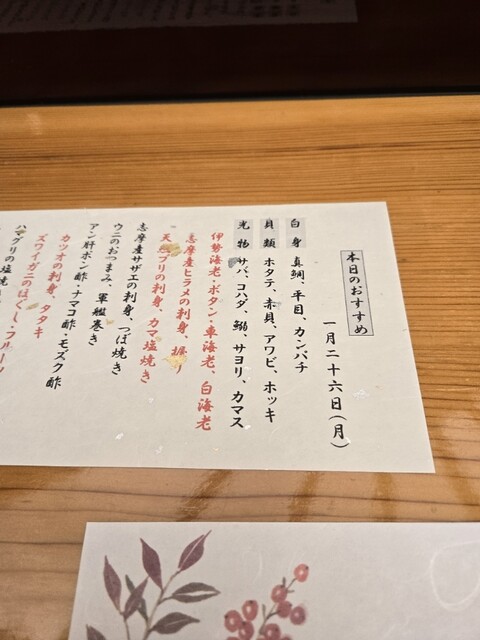 本日のおすすめ
一月二十六日(月)
白身 真鯛、平目、カンパチ
貝類 ホタテ、赤貝、アワビ、ホッキ
光物 サバ、コハダ、鰯、サヨリ、カマス
伊勢海老・ボタン・車海老、白海老
志摩産ヒラメの刺身、握り
天然ブリの刺身、カマ塩焼き
志摩産サザエの刺身、つぼ焼き
ウニのおつまみ、軍艦巻き
アン肝ポン酢・ナマコ酢・モズク酢
カツオの刺身、タタキ
ズワイガニのほぐし・フルーツ
ハマグリの塩焼